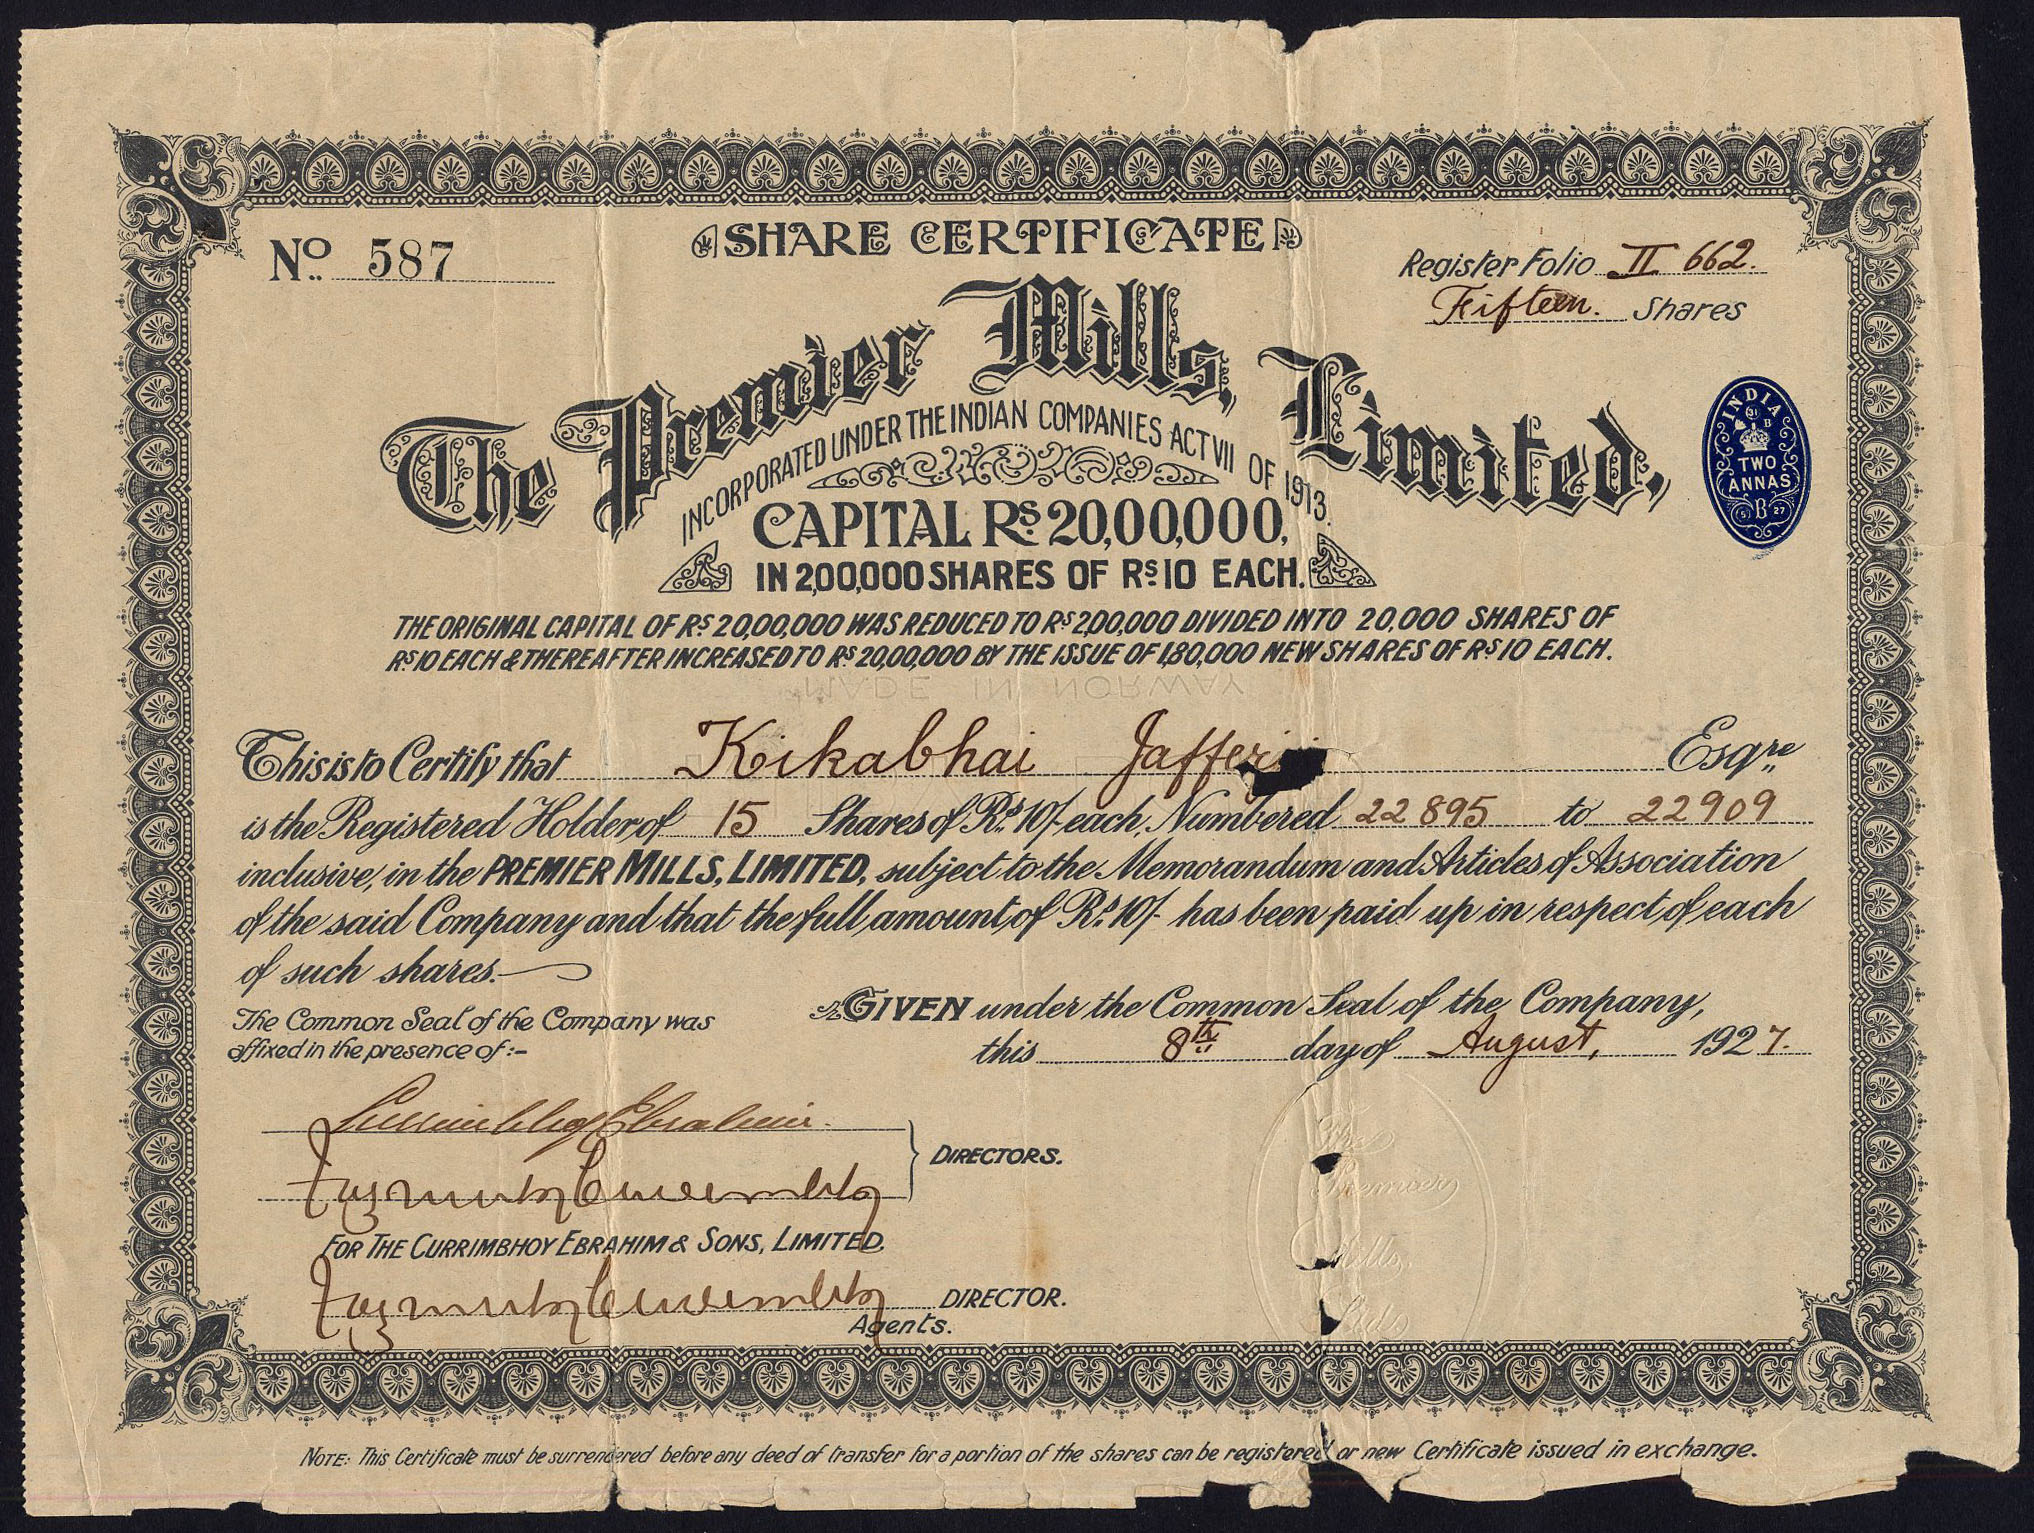 No. 587
SHARE CERTIFICATE
Register Folio II 662.
Fifteen. Shares
The Premier Mills, Limited,
INCORPORATED UNDER THE INDIAN COMPANIES ACT VII OF 1913.
INDIA
31 B
TWO
ANNAS
B
5 27
CAPITAL Rs. 20,00,000,
IN 2,00,000 SHARES OF Rs 10 EACH.
THE ORIGINAL CAPITAL OF Rs 20,00,000 WAS REDUCED TO Rs 2,00,000 DIVIDED INTO 20,000 SHARES OF
Rs 10 EACH & THEREAFTER INCREASED TO Rs 20,00,000 BY THE ISSUE OF 1,80,000 NEW SHARES OF Rs 10 EACH.
MADE IN NORWAY
This is to Certify that Kikabhai Esqre
is the Registered Holder of 15 Shares of Rs. 10/- each, Numbered 22895 to 22909
inclusive, in the PREMIER MILLS, LIMITED, subject to the Memorandum and Articles of Association
of the said Company and that the full amount of Rs. 10/- has been paid up in respect of each
of such shares.
The Common Seal of the Company was
affixed in the presence of :-
GIVEN under the Common Seal of the Company,
this 8th day of August, 1927.
Currimbhoy Ebrahim.
DIRECTORS.
FOR THE CURRIMBHOY EBRAHIM & SONS, LIMITED.
DIRECTOR.
Agents.
The
Premier
Mills,
Ltd.
NOTE: This Certificate must be surrendered before any deed of transfer for a portion of the shares can be registered or new Certificate issued in exchange.